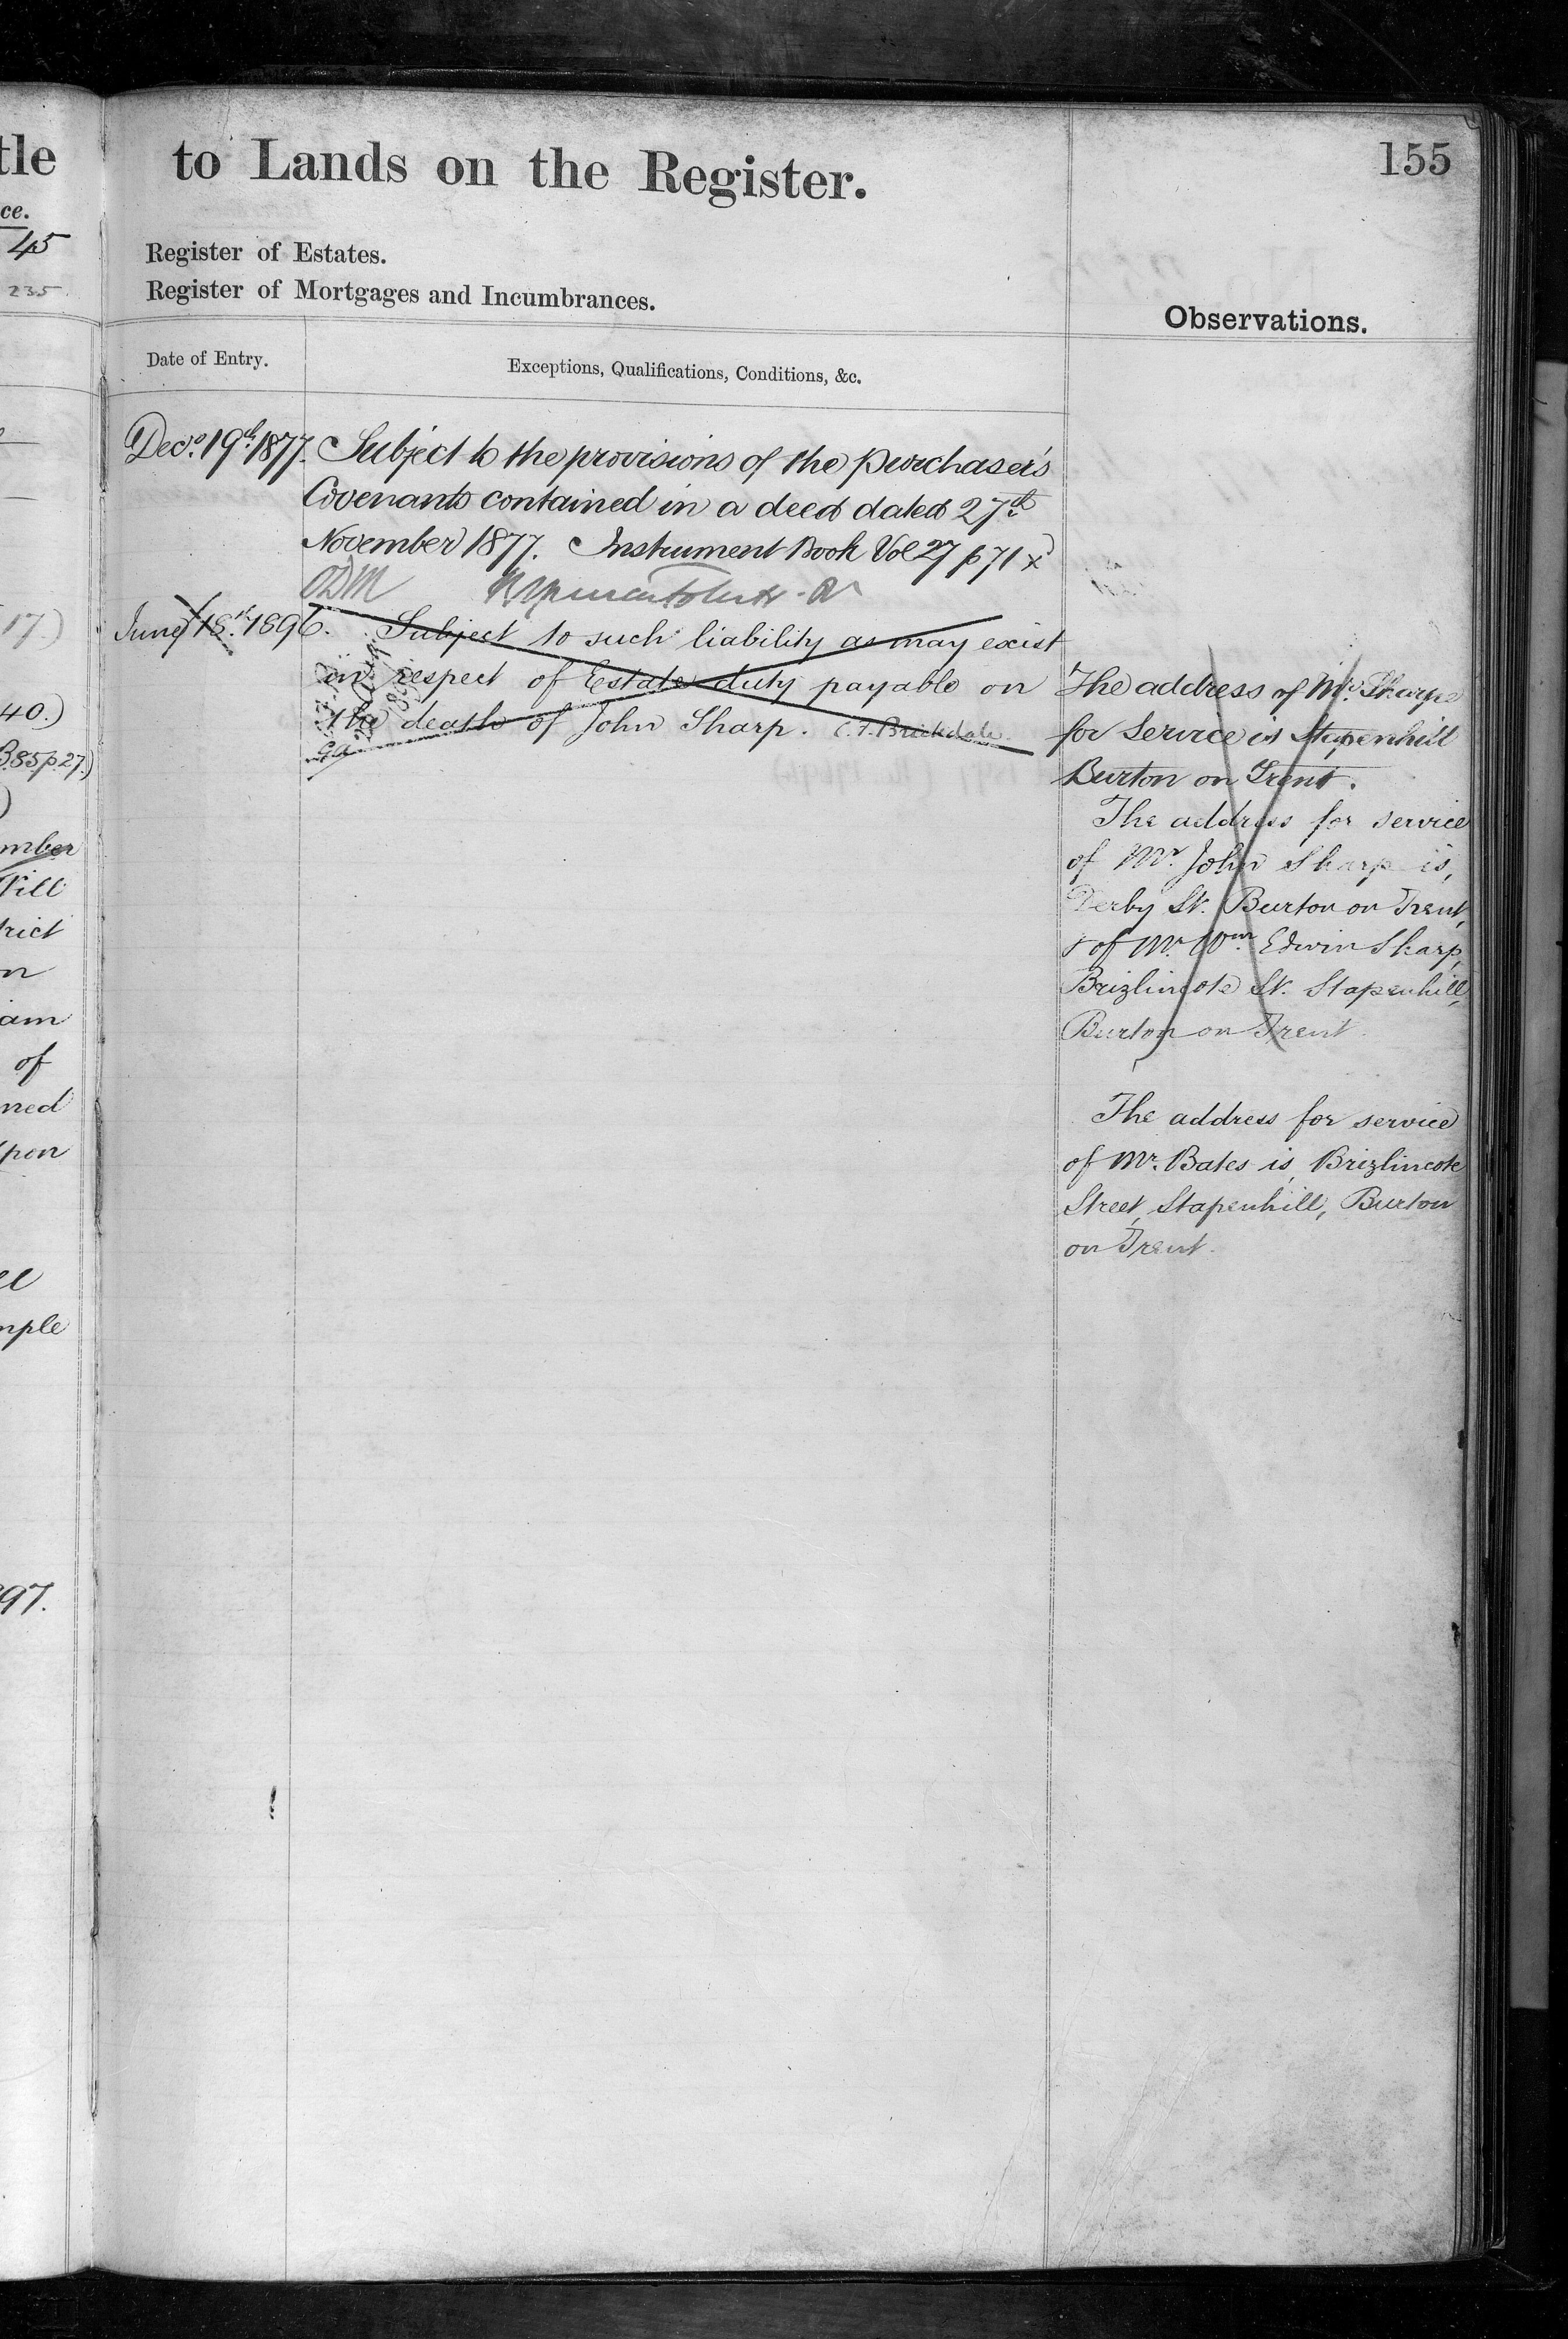 tle
ce.
45
235.
17.)
40.)
B.85p.27.)
)
mber
Will
trict
n
am
of
ned
pon
ll
mple
97.
to Lands on the Register.
155
Register of Estates.
Register of Mortgages and Incumbrances.
Observations.
Date of Entry.
Exceptions, Qualifications, Conditions, &c.
Decr. 19th 1877. Subject to the provisions of the purchaser's
Covenants contained in a deed dated 27th
November 1877. Instrument Book Vol 27 p 71 x
June 18th 1896. Subject to such liability as may exist
in respect of Estate duty payable on
the death of John Sharp. C.F. Brickdale.
The address of Mr. Sharpe
for Service is Stapenhill
Burton on Trent.
The address for service
of Mr. John Sharp is,
Derby St. Burton on Trent,
& of Mr. Wm. Edwin Sharp,
Brizlincote St. Stapenhill,
Burton on Trent.
The address for service
of Mr. Bates is, Brizlincote
Street, Stapenhill, Burton
on Trent.